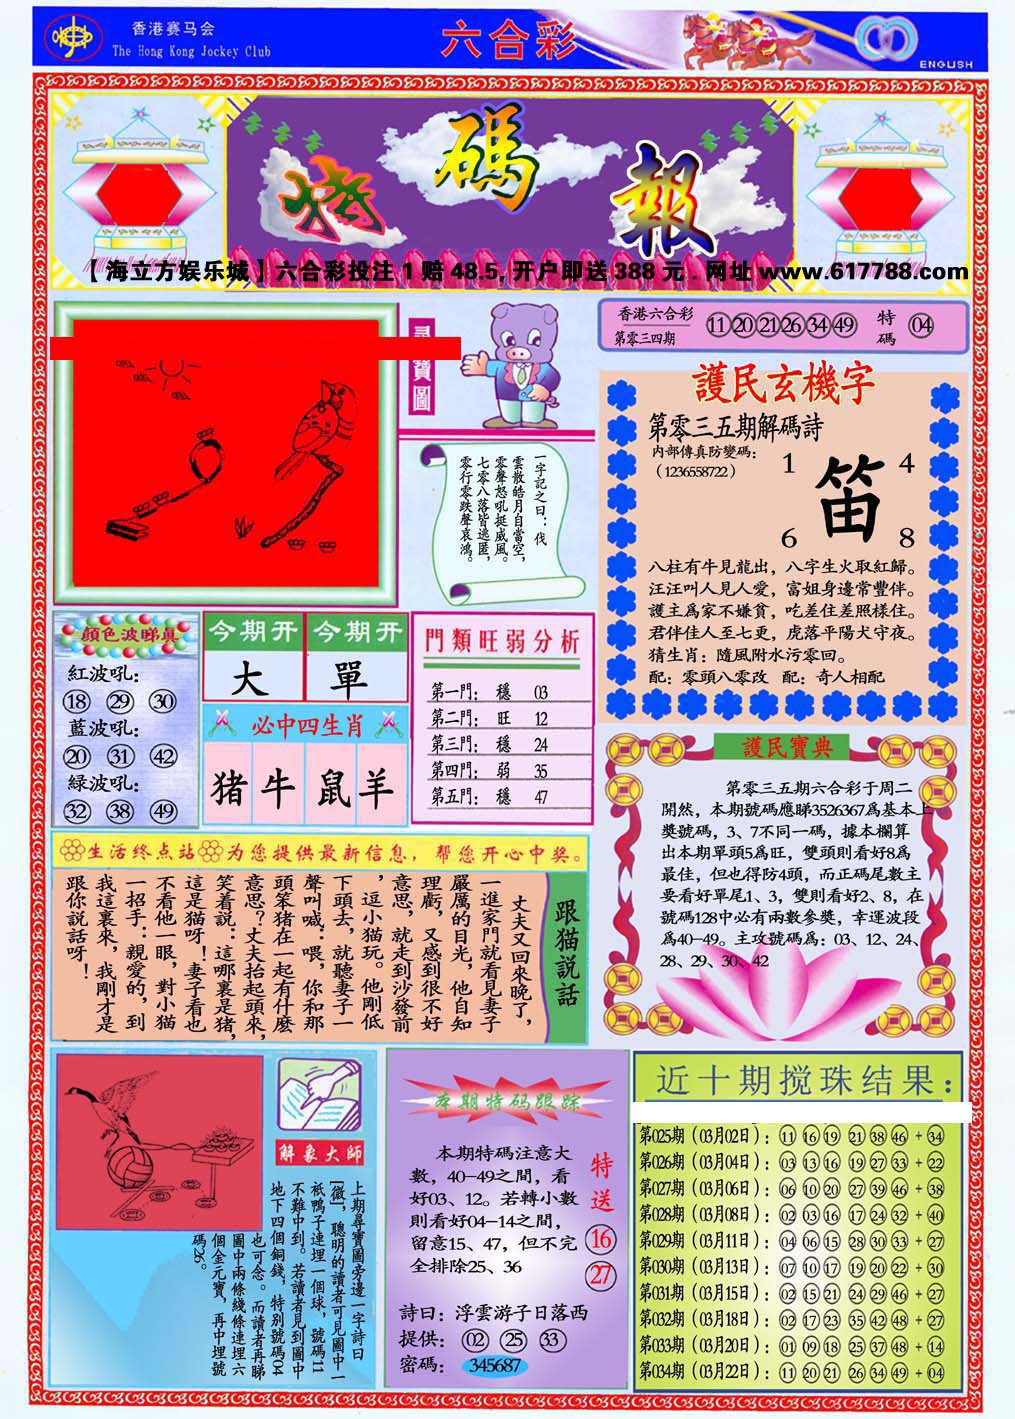 香港赛马会
The Hong Kong Jockey Club
六合彩
ENGLISH
特碼報
【海立方娱乐城】六合彩投注1赔48.5,开户即送388元.网址www.617788.com
尋寶圖
一字記之曰：伐
雲散皓月自當空，
零聲怒吼挺威風。
七零八落皆逃匿，
零行零跌聲哀鴻。
香港六合彩
第零三四期
11 20 21 26 34 49 特碼 04
護民玄機字
第零三五期解碼詩
内部傳真防變碼：
（1236558722）
1 4
笛
6 8
八柱有牛見龍出，八字生火取紅歸。
汪汪叫人見人愛，富姐身邊常豐伴。
護主爲家不嫌貧，吃差住差照樣住。
君伴佳人至七更，虎落平陽犬守夜。
猜生肖：隨風附水污零回。
配：零頭八零改 配：奇人相配
顔色波睇真
紅波吼：
18 29 30
藍波吼：
20 31 42
緑波吼：
32 38 49
今期开 今期开
大 單
必中四生肖
猪 牛 鼠 羊
門類旺弱分析
第一門： 穩 03
第二門： 旺 12
第三門： 穩 24
第四門： 弱 35
第五門： 穩 47
護民寶典
第零三五期六合彩于周二
開然，本期號碼應睇3526367爲基本上
獎號碼，3、7不同一碼，據本欄算
出本期單頭5爲旺，雙頭則看好8爲
最佳，但也得防4頭，而正碼尾數主
要看好單尾1、3，雙則看好2、8，在
號碼128中必有兩數参獎，幸運波段
爲40-49。主攻號碼爲：03、12、24、
28、29、30、42
生活终点站 为您提供最新信息，帮您开心中奖。
跟猫説話
丈夫又回來晚了，
一進家門就看見妻子
嚴厲的目光，他自知
理虧，又感到很不好
意思，就走到沙發前
，逗小猫玩。他剛低
下頭去，就聽妻子一
聲叫喊：喂，你和那
頭笨猪在一起有什麽
意思？丈夫抬起頭來，
笑着説：這哪裏是猪，
這是猫呀！妻子看也
不看他一眼，對小猫
一招手：親愛的，到
我這裏來，我剛才是
跟你説話呀！
解象大師
上期尋寶圖旁邊一字詩曰
[徵]，聰明的讀者可見圖中一
祇鴨子連埋一個球，號碼11
不難中到。若讀者見到圖中
地下四個銅錢，特别號碼04
也可念。而讀者再睇
圖中兩條綫條連埋六
個金元寶，再中埋號
碼26。
本期特码跟踪
本期特碼注意大
數，40-49之間，看
好03、12。若轉小數
則看好04-14之間，
留意15、47，但不完
全排除25、36
特送
16
27
詩曰：浮雲游子日落西
提供：02 25 33
密碼：345687
近十期搅珠结果：
第025期（03月02日）：11 16 19 21 38 46 + 34
第026期（03月04日）：03 13 16 19 27 33 + 22
第027期（03月06日）：06 10 20 27 39 46 + 38
第028期（03月08日）：02 03 16 17 24 32 + 40
第029期（03月11日）：04 06 15 28 30 33 + 27
第030期（03月13日）：07 10 17 19 20 22 + 30
第031期（03月15日）：02 15 21 24 29 46 + 27
第032期（03月18日）：02 17 23 35 42 48 + 27
第033期（03月20日）：01 09 18 25 37 48 + 14
第034期（03月22日）：11 20 21 26 34 49 + 04